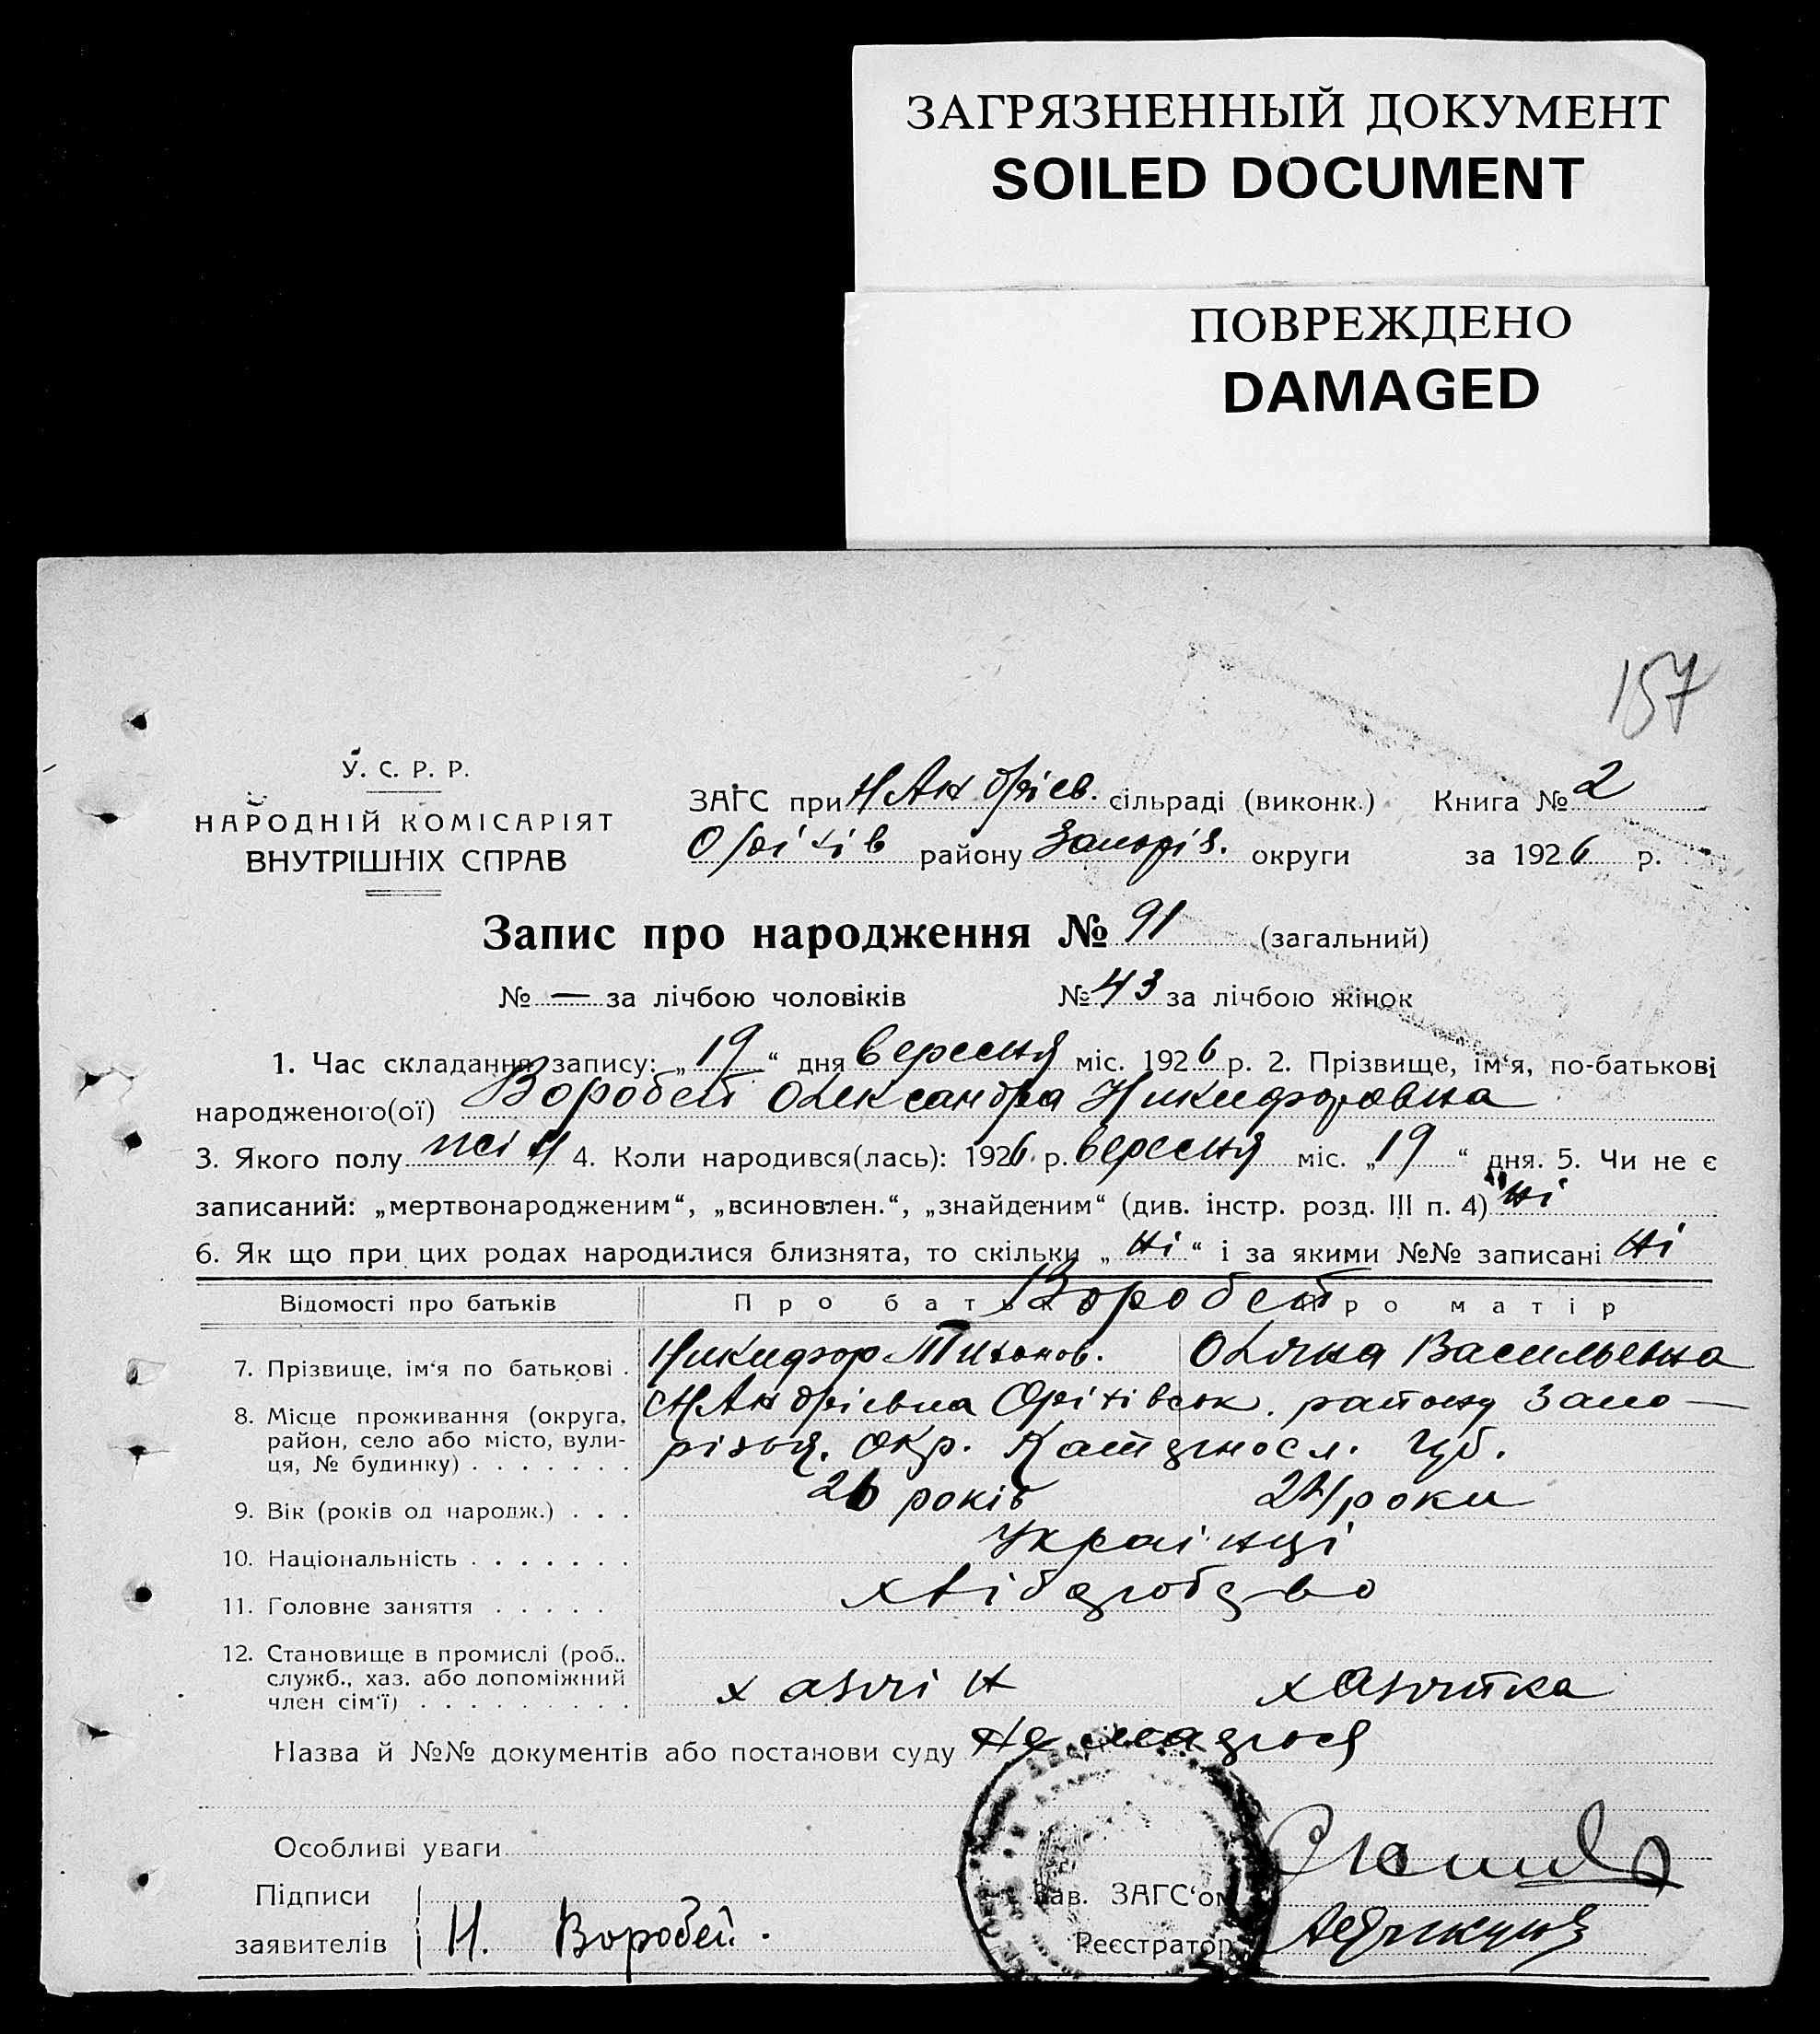 ЗАГРЯЗНЕННЫЙ ДОКУМЕНТ
SOILED DOCUMENT
ПОВРЕЖДЕНО
DAMAGED
157
У. С. Р. Р.
НАРОДНІЙ КОМІСАРІЯТ
ВНУТРІШНІХ СПРАВ
ЗАГС при Н Андрієв. сільраді (виконк.) Книга № 2
Оріхів району Запоріз. округи за 1926 р.
Запис про народження № 91 (загальний)
№ — за лічбою чоловіків № 43 за лічбою жінок
1. Час складання запису: „19“ дня вересня міс. 1926 р. 2. Прізвище, ім‘я, по-батькові
народженого(ої) Воробей Олександра Никифоровна
3. Якого полу жін 4. Коли народився(лась): 1926 р. вересня міс. „19“ дня. 5. Чи не є
записаний: „мертвонародженим“, „всиновлен.“, „знайденим“ (див. інстр. розд. III п. 4) ні
6. Як що при цих родах народилися близнята, то скільки „ні“ і за якими №№ записані ні
Відомості про батьків Про батька Воробей Про матір
7. Прізвище, ім‘я по батькові . Никифор Тихонов. Оляна Васильевна
8. Місце проживання (округа, Н Андрієвка Оріхівськ. району Запо-
район, село або місто, вули- ріжя. окр. Катериносл. губ.
ця, № будинку) . . . . . . .
9. Вік (років од народж.) . . . 26 років 24 роки
10. Національність . . . . . . . Українці
11. Головне заняття . . . . . хліборобство
12. Становище в промислі (роб.,
служб., хаз. або допоміжний хазяїн хазяйка
член сім‘ї) . . . . . . . . .
Назва й №№ документів або постанови суду не
Особливі уваги
Підписи Зав. ЗАГС‘ом
заявителів Н. Воробей. Реєстратор